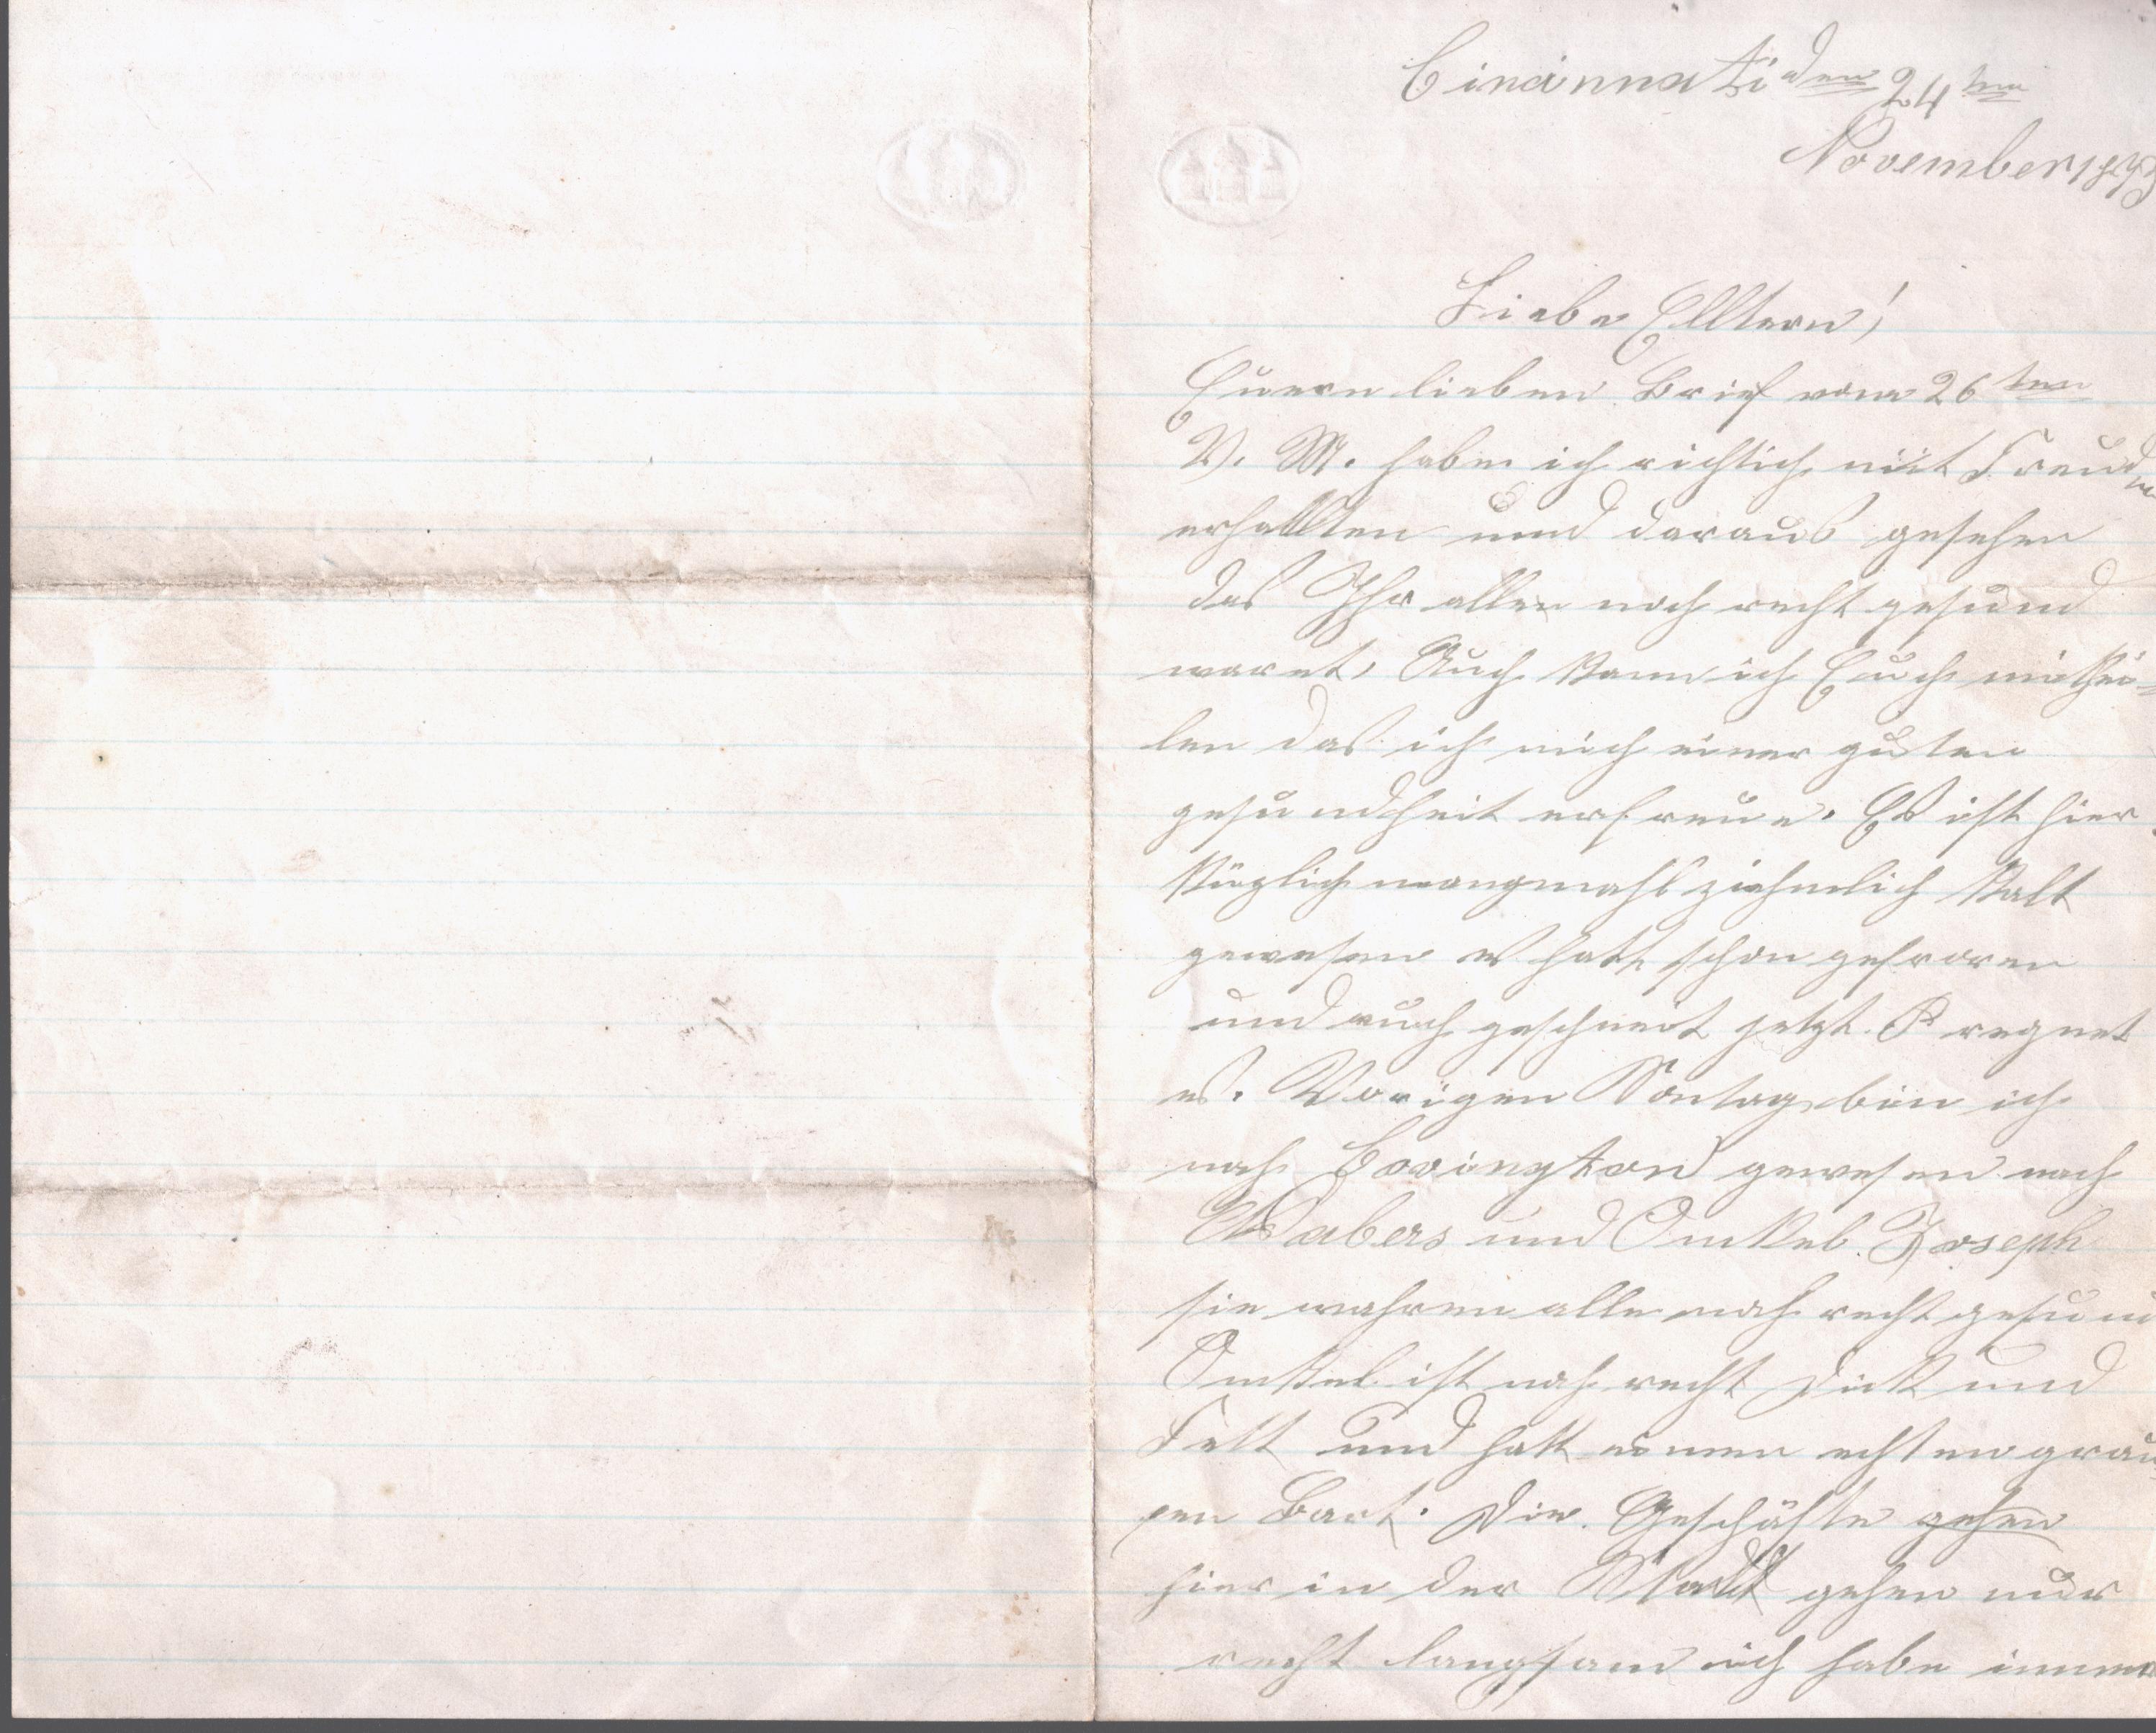 Cincinnati den 24ten
November 1873
Liebe Elltern!
Euern lieben Brief vom 26ten
V. M. habe ich richtich mit Freuden
erhallten und daraus gesehen
das Ihr alle noch recht gesund
waret, Auch kann ich Euch mitthei-
len das ich mich einer guten
gesundheit erfreue. Es ist hier
kürzlich mangmahl ziehmlich kalt
gewesen es hatt schon gefroren
und auch geschneit jetzt regnet
es. Vorigen Sontag bin ich
nach Covington gewesen nach
Wabers und Onkel Joseph
sie wahren alle noch recht gesund
Onkel ist noch recht dick und
Fett und hatt einen echten grau
en Bart. Die Geschäfte gehen
hier in der Stadt gehen nur
recht langsam ich habe immer